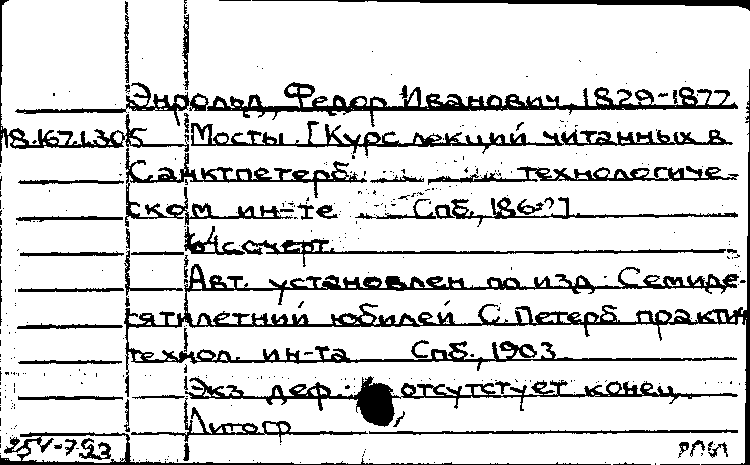 Энрольд, Федор Иванович, 1829-1877
18.167.1.305 Мосты. [Курс лекций читанных в
Санктпетерб. технологиче-
ском ин-те Спб., 186-?]
64с с черт.
Авт. установлен по изд.: Семиде-
сятилетний юбилей С.Петерб. практич
технол. ин-та Спб., 1903
Экз деф.: отсутстует конец,
Литогр
254-793